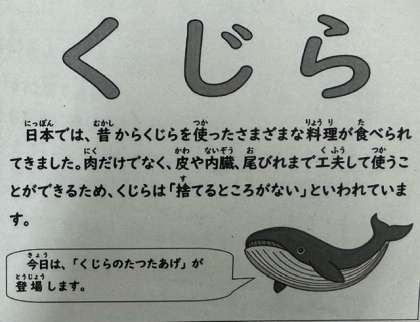 くじら
日本では、昔からくじらを使ったさまざまな料理が食べられ
てきました。肉だけでなく、皮や内臓、尾びれまで工夫して使うこ
とができるため、くじらは「捨てるところがない」といわれていま
す。
今日は、「くじらのたつたあげ」が
登場します。